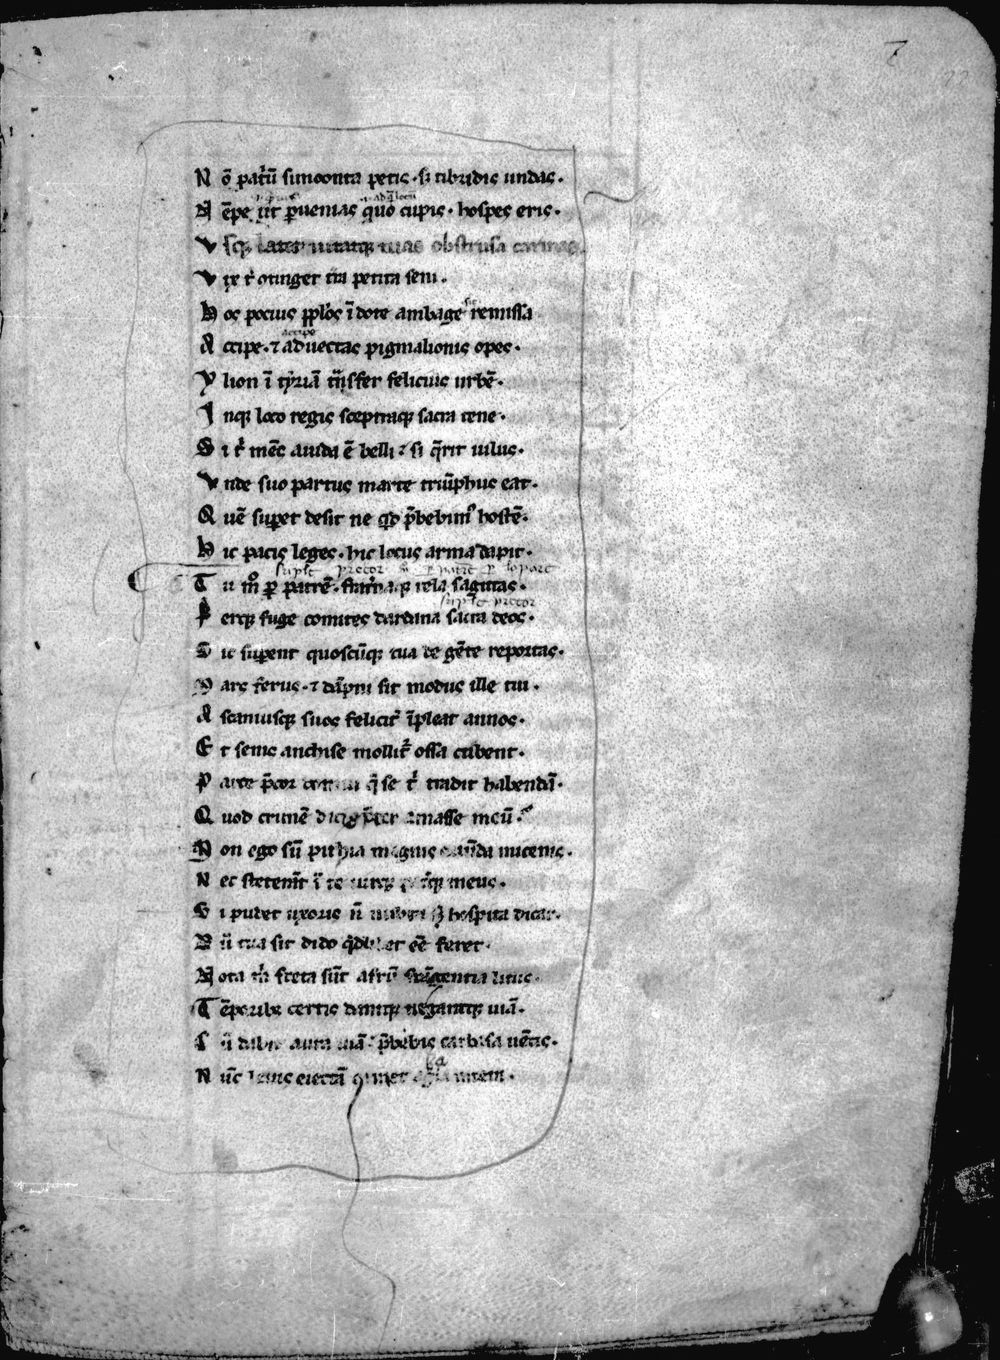 N õ pat͛ũ simoonta petis · si tibridis undas ·
N ẽpe ut ꝑuenias quo cupis · hospes eris ·
V sqꝫ latet uitatqꝫ tuas obstrusa carinas
V ix t͛ otinget tr̃a petita seni ·
H os pocius ppl̃os ĩ dote ambage remissa
sit
A ccipe · ⁊ aduectas pigmalionis opes ·
accipe
Y lion ĩ tyriã t̃nsfer felicius urbẽ ·
I nqꝫ loco regis sceptraqꝫ sacra tene ·
S i t͛ mẽs auida ẽ belli ⁊ si q̃rit iulus ·
V nde suo partus marte triũphus eat ·
Q uẽ superet desit ne qd p̃bebimꝰ hostẽ ·
H ic pacis leges · hic locus arma capit ·
suplet precor
T u mͦ ꝑ patrẽ · fraternaqꝫ tela sagittas ·
suplet precor
P erqꝫ fuge comites dardana sacra deos ·
S ic suꝑent quoscũqꝫ tua de gẽte reportas ·
M ars ferus · ⁊ dãpni sit modus ille tui ·
A scaniusqꝫ suos felicit͛ ĩpleat annos ·
E t senis anchise mollit͛ ossa cubent ·
P arce p̃cor domui q̃ se t͛ tradit habendã ·
Q uod crimẽ dicis p̃ter amasse meũ ·
N on ego sũ pithia magnis oriũda micenis ·
N ec steterũt ĩ te uirqꝫ pat͛qꝫ meus ·
S i pudet uxoris ñ nupta sꝫ hospita dicar ·
D ũ tua sit dido qdlibet eẽ feret ·
N ota m̃ freta sũt afrũ frãgentia litus ·
T ẽporibꝫ certis dantqꝫ negantqꝫ uiã ·
C ũ dabit aura uiã · p̃bebis carbasa uẽtis ·
N ũc leuis eiectã otinet alga ratem ·